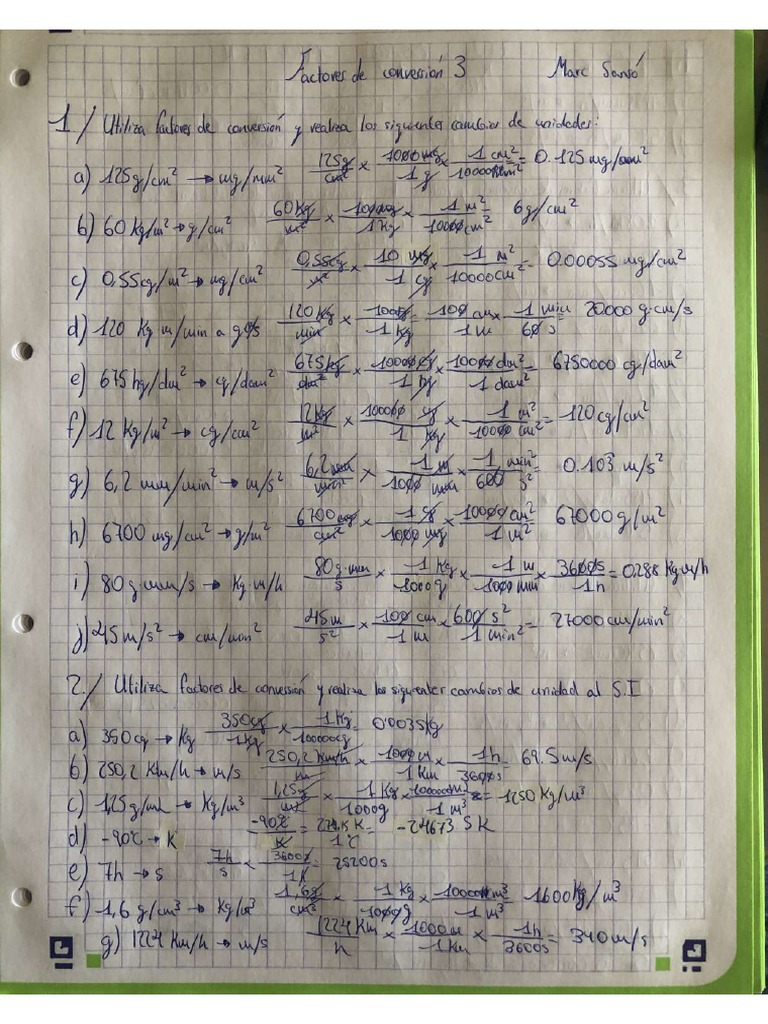 Factores de conversión 3 Marc Sansó
1/ Utiliza factores de conversión y realiza los siguientes cambios de unidades:
a) 125g/cm² → mg/mm² 125g/cm² × 1000mg/1g × 1cm²/ = 0.125 mg/mm²
b) 60 Kg/m² → g/cm² 60Kg/m² × /1Kg × 1m²/10000cm² 6g/cm²
c) 0,55cg/m² → mg/cm² 0,55cg/m² × 10 mg/1 cg × 1 m²/10000cm² = 0.00055 mg/cm²
d) 120 Kg m/min a 120 Kg/min × 1000g/1 Kg = 100 cm/1m × 1 min/60 s = 20000 g·cm/s
e) 675hg/dm² → cg/dam² 675hg/dm² × /1 hg × 10000 dm²/1 dam² = 6750000 cg/dam²
f) 12 Kg/m² → cg/cm² 12Kg/m² × 100000 cg/1 Kg × 1 m²/10000 cm² = 120cg/cm²
g) 6,2 mm/min² → m/s² 6,2mm/min² × 1 m/1000 mm × 1 min²/600 s² = 0.103 m/s²
h) 6700 mg/cm² → g/m² 6700 mg/cm² × 1 g/1000 mg × 10000 cm²/1 m² = 67000g/m²
i) 80g·mm/s → Kg·m/h 80g·mm/s × 1 Kg/1000g × 1 m/1000 mm × 3600s/1h = 0.288 Kg·m/h
j) 45m/s² → cm/min² 45m/s² × 100 cm/1 m × 600 s²/1 min² = 27000cm/min²
2./ Utiliza factores de conversión y realiza los siguientes cambios de unidad al S.I
a) 350cg → Kg 350cg/1Kg × 1Kg/100000cg = 0.0035Kg
b) 250,2 Km/h → m/s 250,2 Km/h × 1000m/1Km × 1h/3600s = 69.5m/s
c) 1,25g/mL → Kg/m³ 1,25g/mL × 1 Kg/1000g × /1 m³ = 1250 Kg/m³
d) -90ºC → K -90ºC/K = /1ºC = K
e) 7h → s 7h/s × 3600s/1h = 25200s
f) 1,6 g/cm³ → Kg/m³ 1,6g/cm³ × 1Kg/1000g × /1 m³ = 1600Kg/m³
g) 1224 Km/h → m/s 1224 Km/h × 1000m/1Km × 1h/3600s = 340m/s